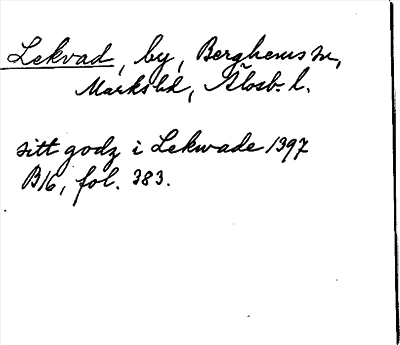 Lekvad, by, Berghems sn,
Marks hd, Älvsb. l.
sitt godz i Lekwade 1397
B16, fol. 383.